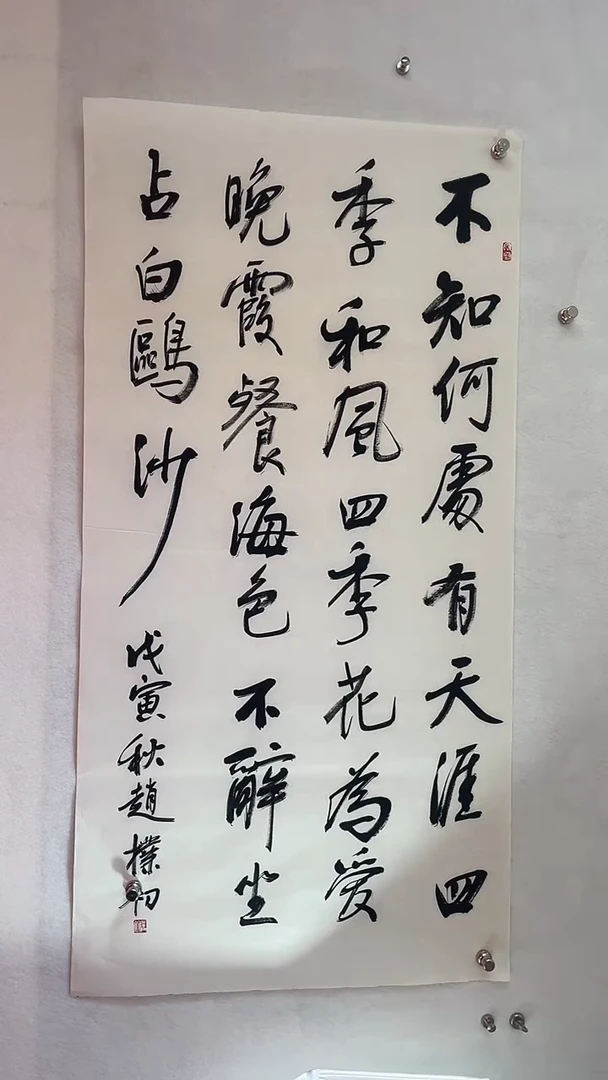 不知何處有天涯四
季和風四季花為愛
晚霞餐海色不辭坐
占白鷗沙
戊寅秋趙樸初